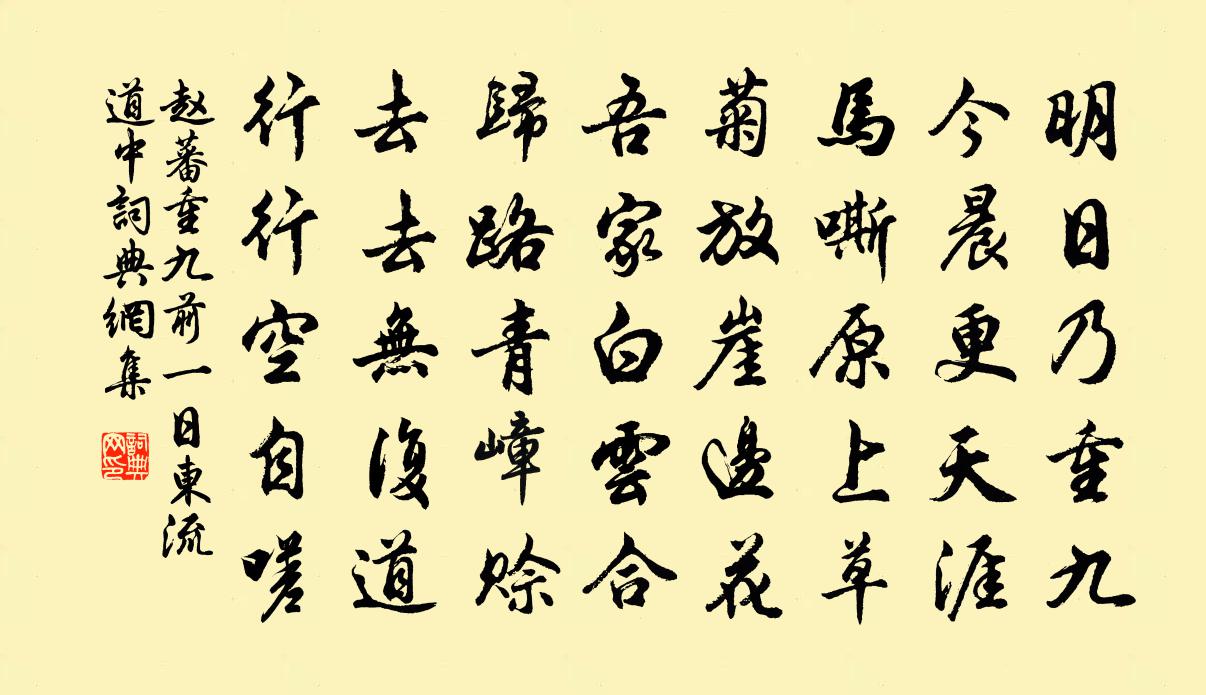 明日乃重九
今晨更天涯
馬嘶原上草
菊放崖邊花
吾家白雲合
歸路青嶂赊
去去無復道
行行空自嗟
赵蕃重九前一日東流
道中詞典網集
詞典
网印